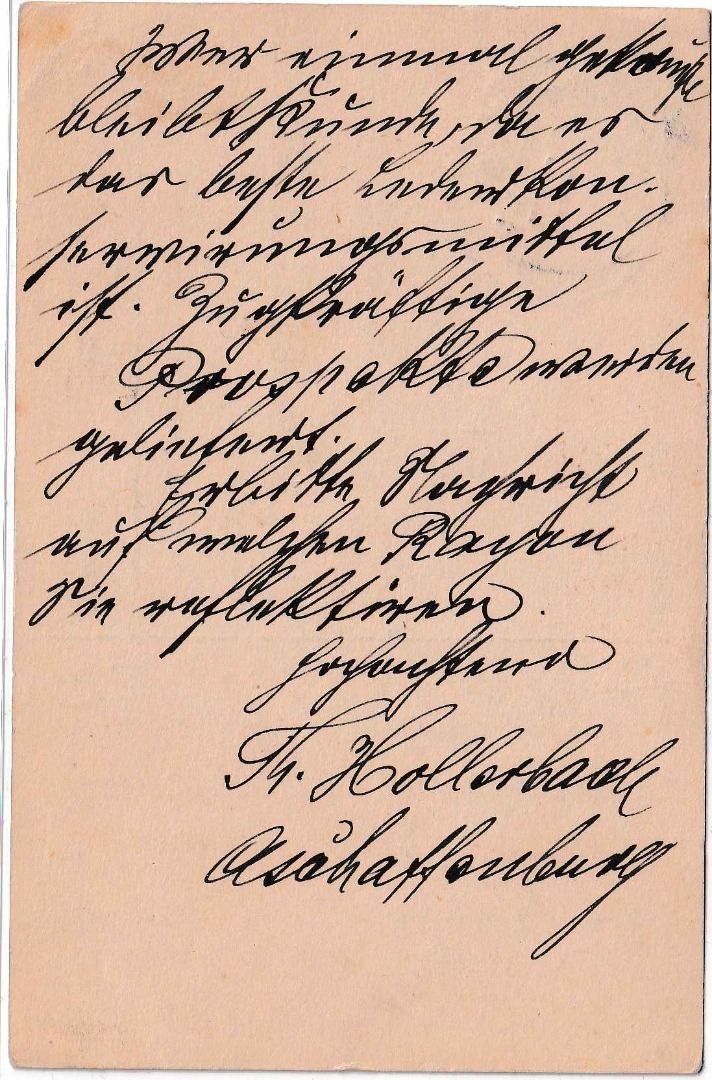 Wer einmal gekauft
bleibt Kunde, da es
das beste Lederkon-
servirungsmittel
ist. Zugkräftige
Prospekte werden
geliefert.
Erbitte Nachricht
auf welchen Rayon
Sie reflektiren.
Hochachtend
Th. Hollerbach
Aschaffenburg